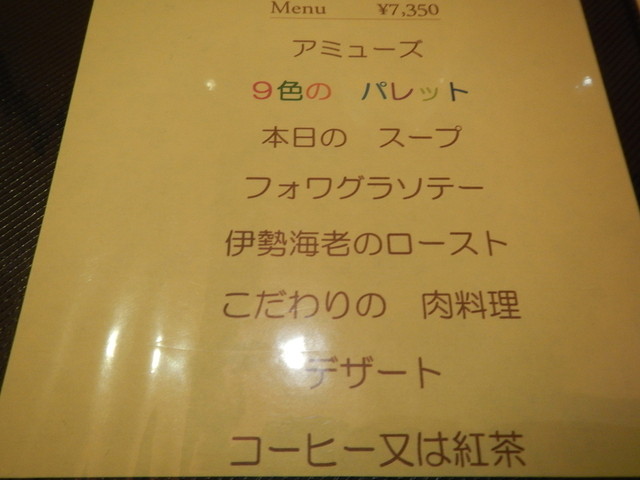 Menu ¥7,350
アミューズ
９色の　パレット
本日の　スープ
フォワグラソテー
伊勢海老のロースト
こだわりの　肉料理
デザート
コーヒー又は紅茶